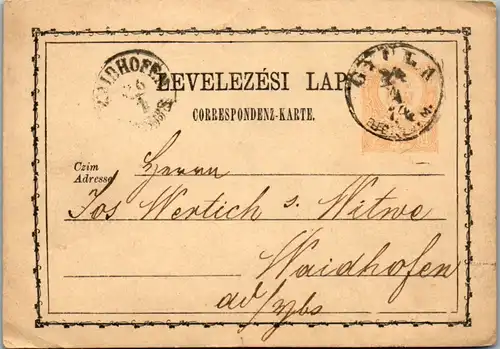 WAIDHOFEN
LEVELEZÉSI LAP
GYULA
CORRESPONDENZ-KARTE.
Czim
Adresse
Herrn
Jos Wertich s. Witwe
Waidhofen
ad/ybs